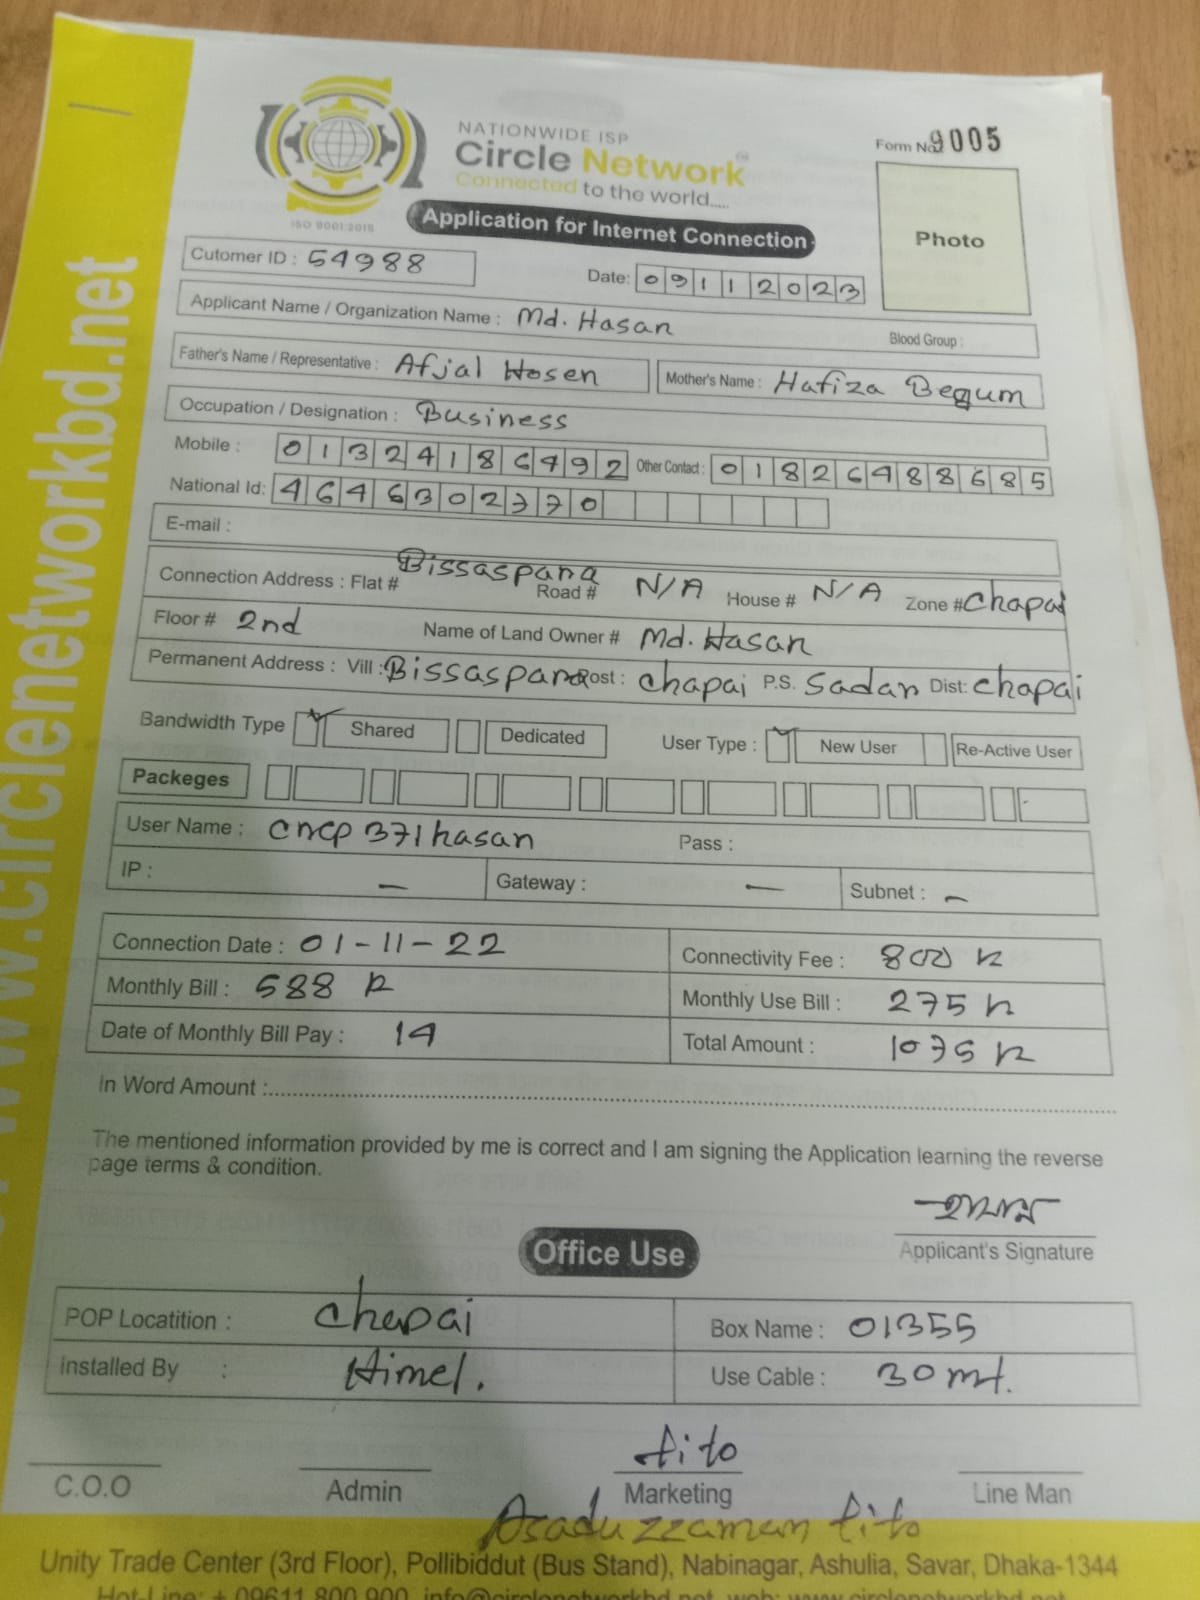 www.circlenetworkbd.net
NATIONWIDE ISP
Circle Network
Connected to the world.....
ISO 9001:2015
Form No. 9005
Application for Internet Connection
Photo
Cutomer ID : 54988
Date: 09112023
Applicant Name / Organization Name : Md. Hasan
Blood Group :
Father's Name / Representative : Afjal Hosen
Mother's Name : Hafiza Begum
Occupation / Designation : Business
Mobile : 01324186492 Other Contact : 01826488685
National Id: 4646302770
E-mail :
Connection Address : Flat # Bissaspara Road # N/A House # N/A Zone # Chapai
Floor # 2nd Name of Land Owner # Md. Hasan
Permanent Address : Vill : Bissaspara Post : Chapai P.S. Sadar Dist: Chapai
Bandwidth Type Shared Dedicated User Type : New User Re-Active User
Packeges
User Name : cncp371hasan Pass :
IP : – Gateway : – Subnet : –
Connection Date : 01-11-22 Connectivity Fee : 800
Monthly Bill : 588 Monthly Use Bill : 275
Date of Monthly Bill Pay : 14 Total Amount : 1075
In Word Amount :
The mentioned information provided by me is correct and I am signing the Application learning the reverse
page terms & condition.
Applicant's Signature
Office Use
POP Locatition : Chapai Box Name : 01355
Installed By : Himel. Use Cable : 30 mt.
tito
C.O.O Admin Marketing Line Man
Asaduzzaman tito
Unity Trade Center (3rd Floor), Pollibiddut (Bus Stand), Nabinagar, Ashulia, Savar, Dhaka-1344
Hot-Line: + 09611 800 900, info@circlenetworkbd.net, web: www.circlenetworkbd.net